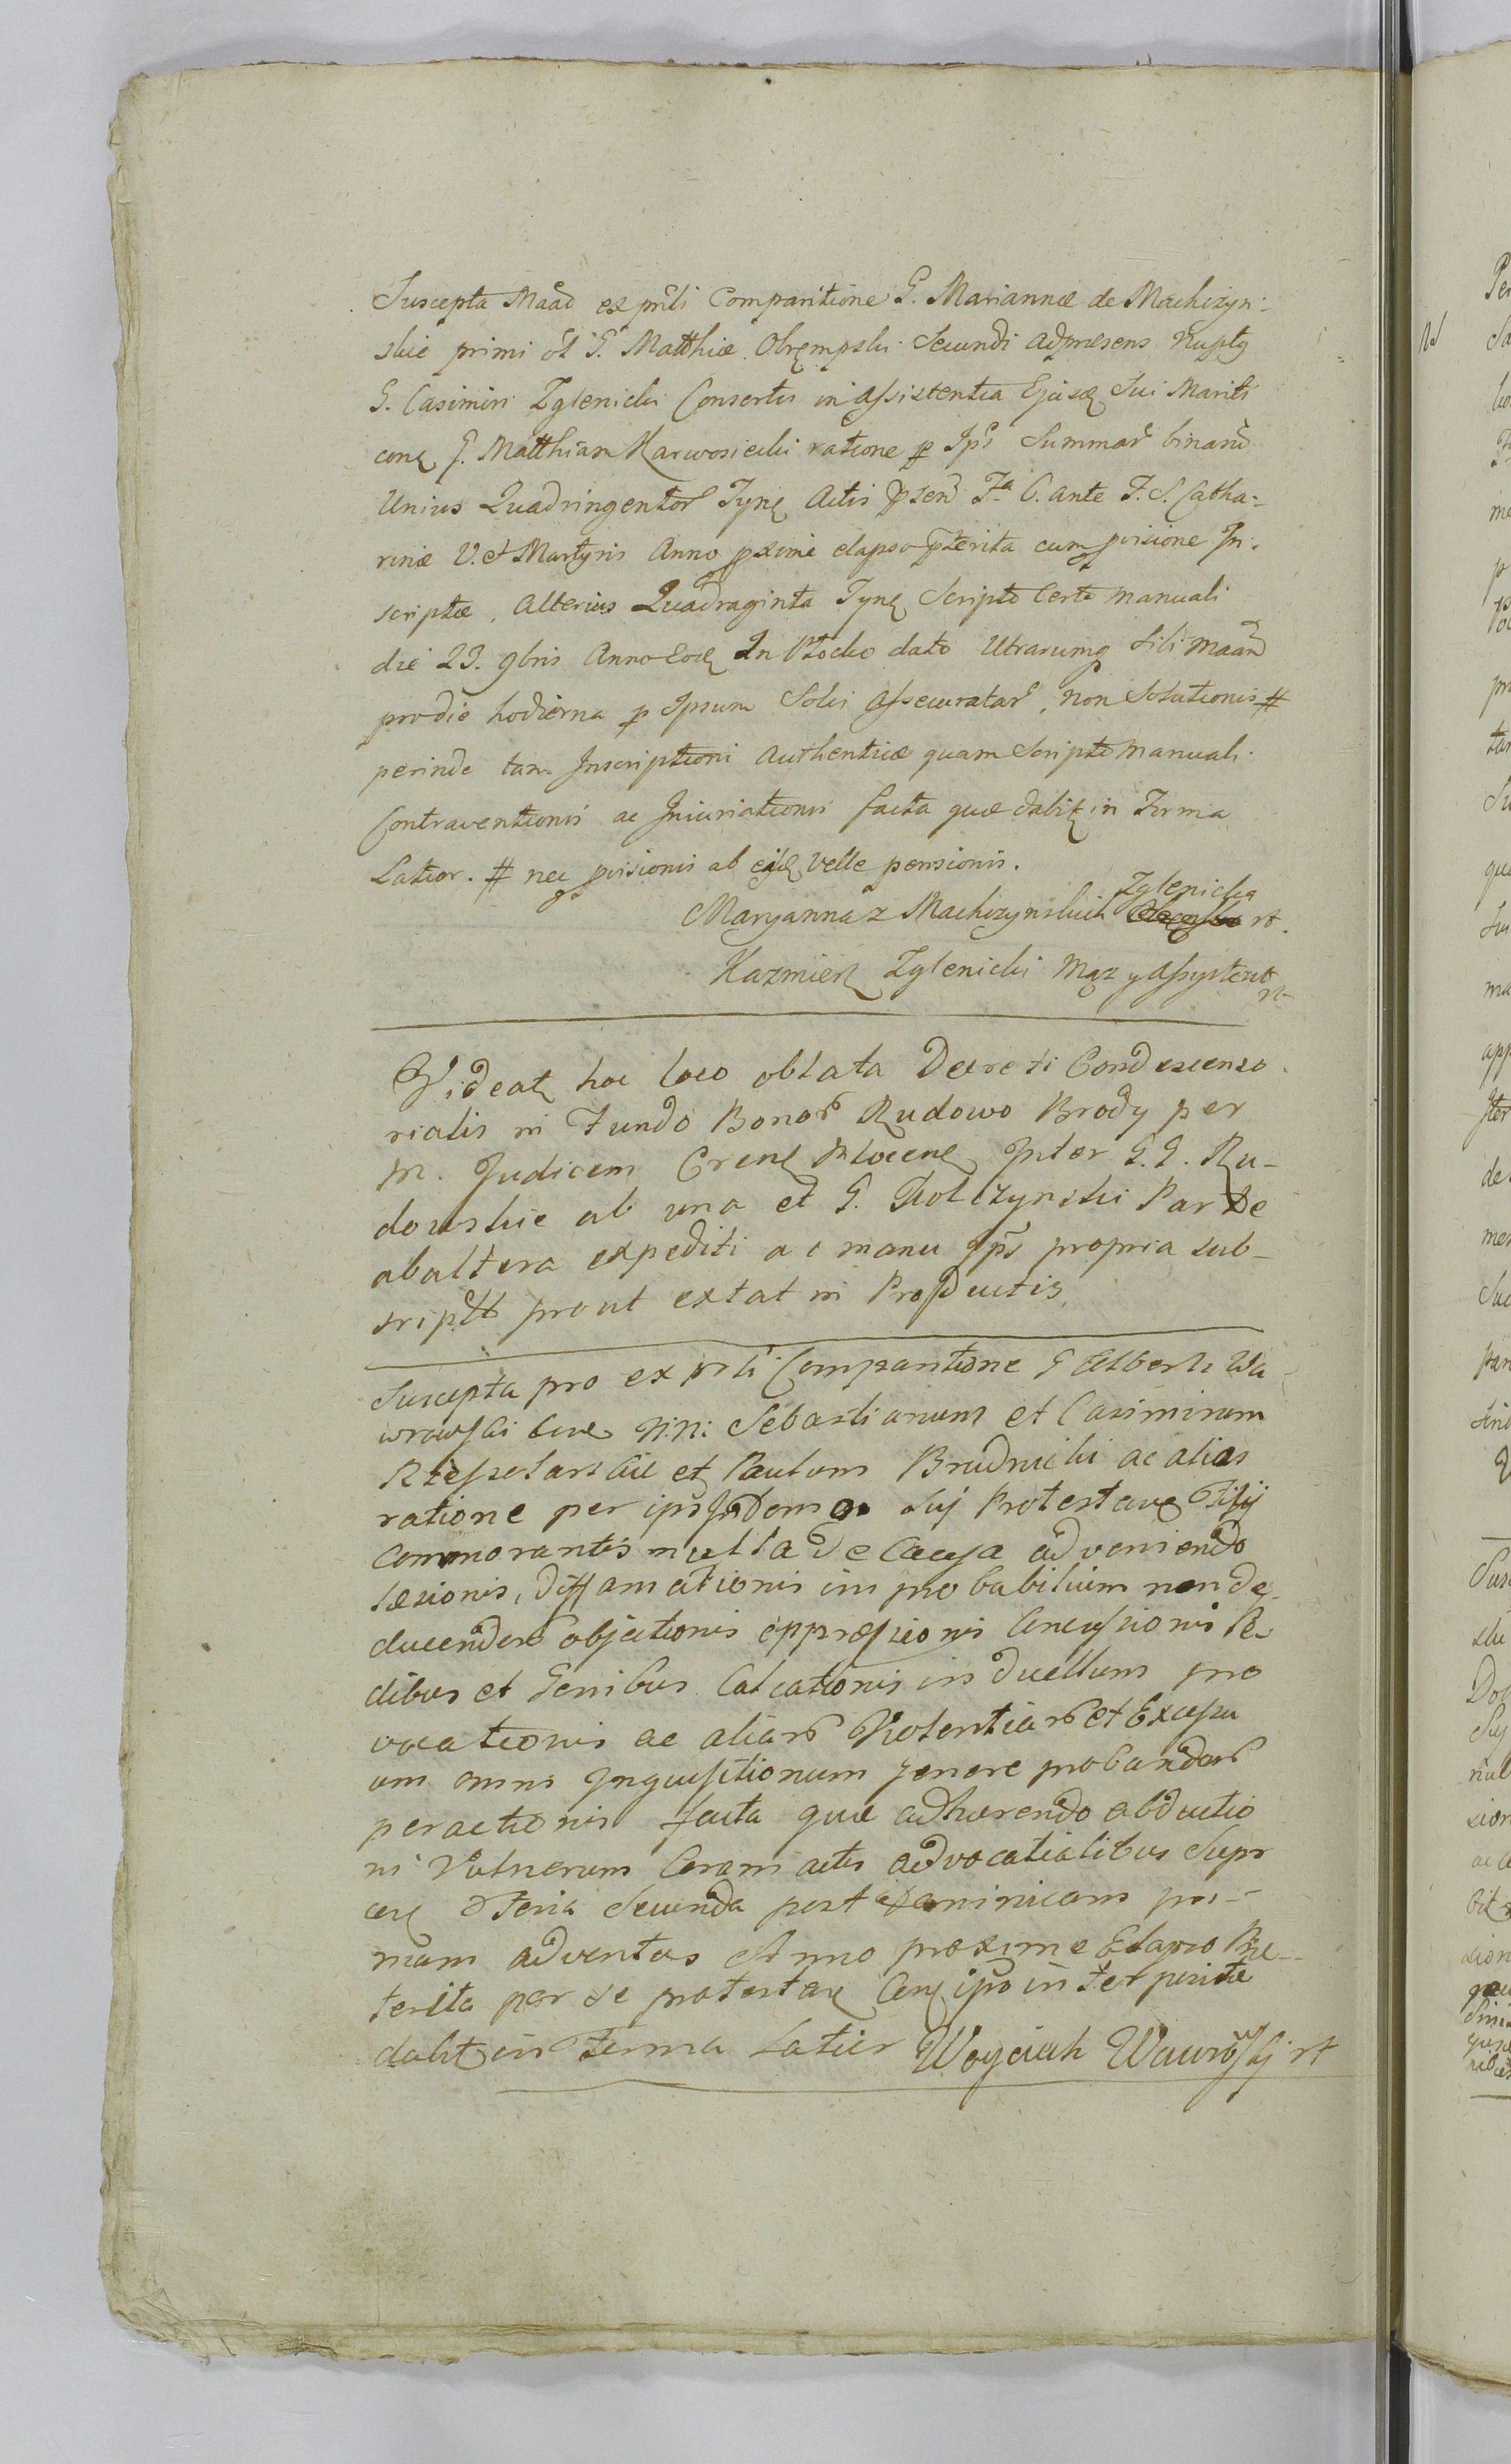 Suscepta Maad ex prńli Comparitione G. Mariannæ de Machczyn:
skie primi ol G. Matthiæ Obrempski Secundi adpræsens Nupty
G. Casimiri Zglenicki Consortis in assistentia Ejusd Sui Mariti
con G. Matthiam Karwosiecki ratione p Ips Summar binar
Unius Quadringentor Tyn Actis psen Fa 6. ante F. S. Catha-
rinæ V. et Martyris Anno pxime elapso pterita cum pvisione In-
scriptæ, Alterius Quadraginta Tyn Scripto Certo manuali
die 23. 9bris Anno Eod In Płocko dato Utrarumq sibi maan
pro die hodierna p Ipsum Solvi assecuratar, non Solutionis #
perinde tam Inscriptioni Authenticæ quam Scripto manuali
Contraventionis ac Iniuriationis facta quæ dabit in Firma
Latior. # nec pvisionis ab ejisd velle pensionis.
Zglenicka
Maryanna z Machczynskich rt.
Kazmierz Zglenicki Mąz y Assystent
rt
Videat hoc loco oblata Decreti Condescenso
rialis in Fundo Bonor Rudowo Brody per
M. Judicem Cren Plocen Inter G. G. Ru-
dowskie ab una et G. Parte
ab altera expediti ac manu Ips propria sub-
script prout extat in Productis
Suscepta pro ex prli Comparitione G Alberti Wa
wrowski con N:N: Sebastianum et Casimirum
Rzeszotarskie et Paulum Brudnicki ac alios
ratione per ips in domo Suj Protestan Filij
commorantis nulla de Causa adveniendo
læsionis, diffamationis improbabilium non de
ducendar objectionis oppræssionis Concussionis Pe
dibus et Genibus Calcationis in duellum pro
vocationis ac aliar Violentiar et Excessu
um omni Inquisitionum genere probandor
peractionis facta quæ adhærendo obductio
ni Vulnerum Coram actis advocatialibus Siepr
cen Feria Secunda post Dominicam pri-
mam adventus Anno proxime Elapso Præ-
terita per se protestan Con ipso interposita
dabit in Forma Latior Woyciech Wawrowskj rt